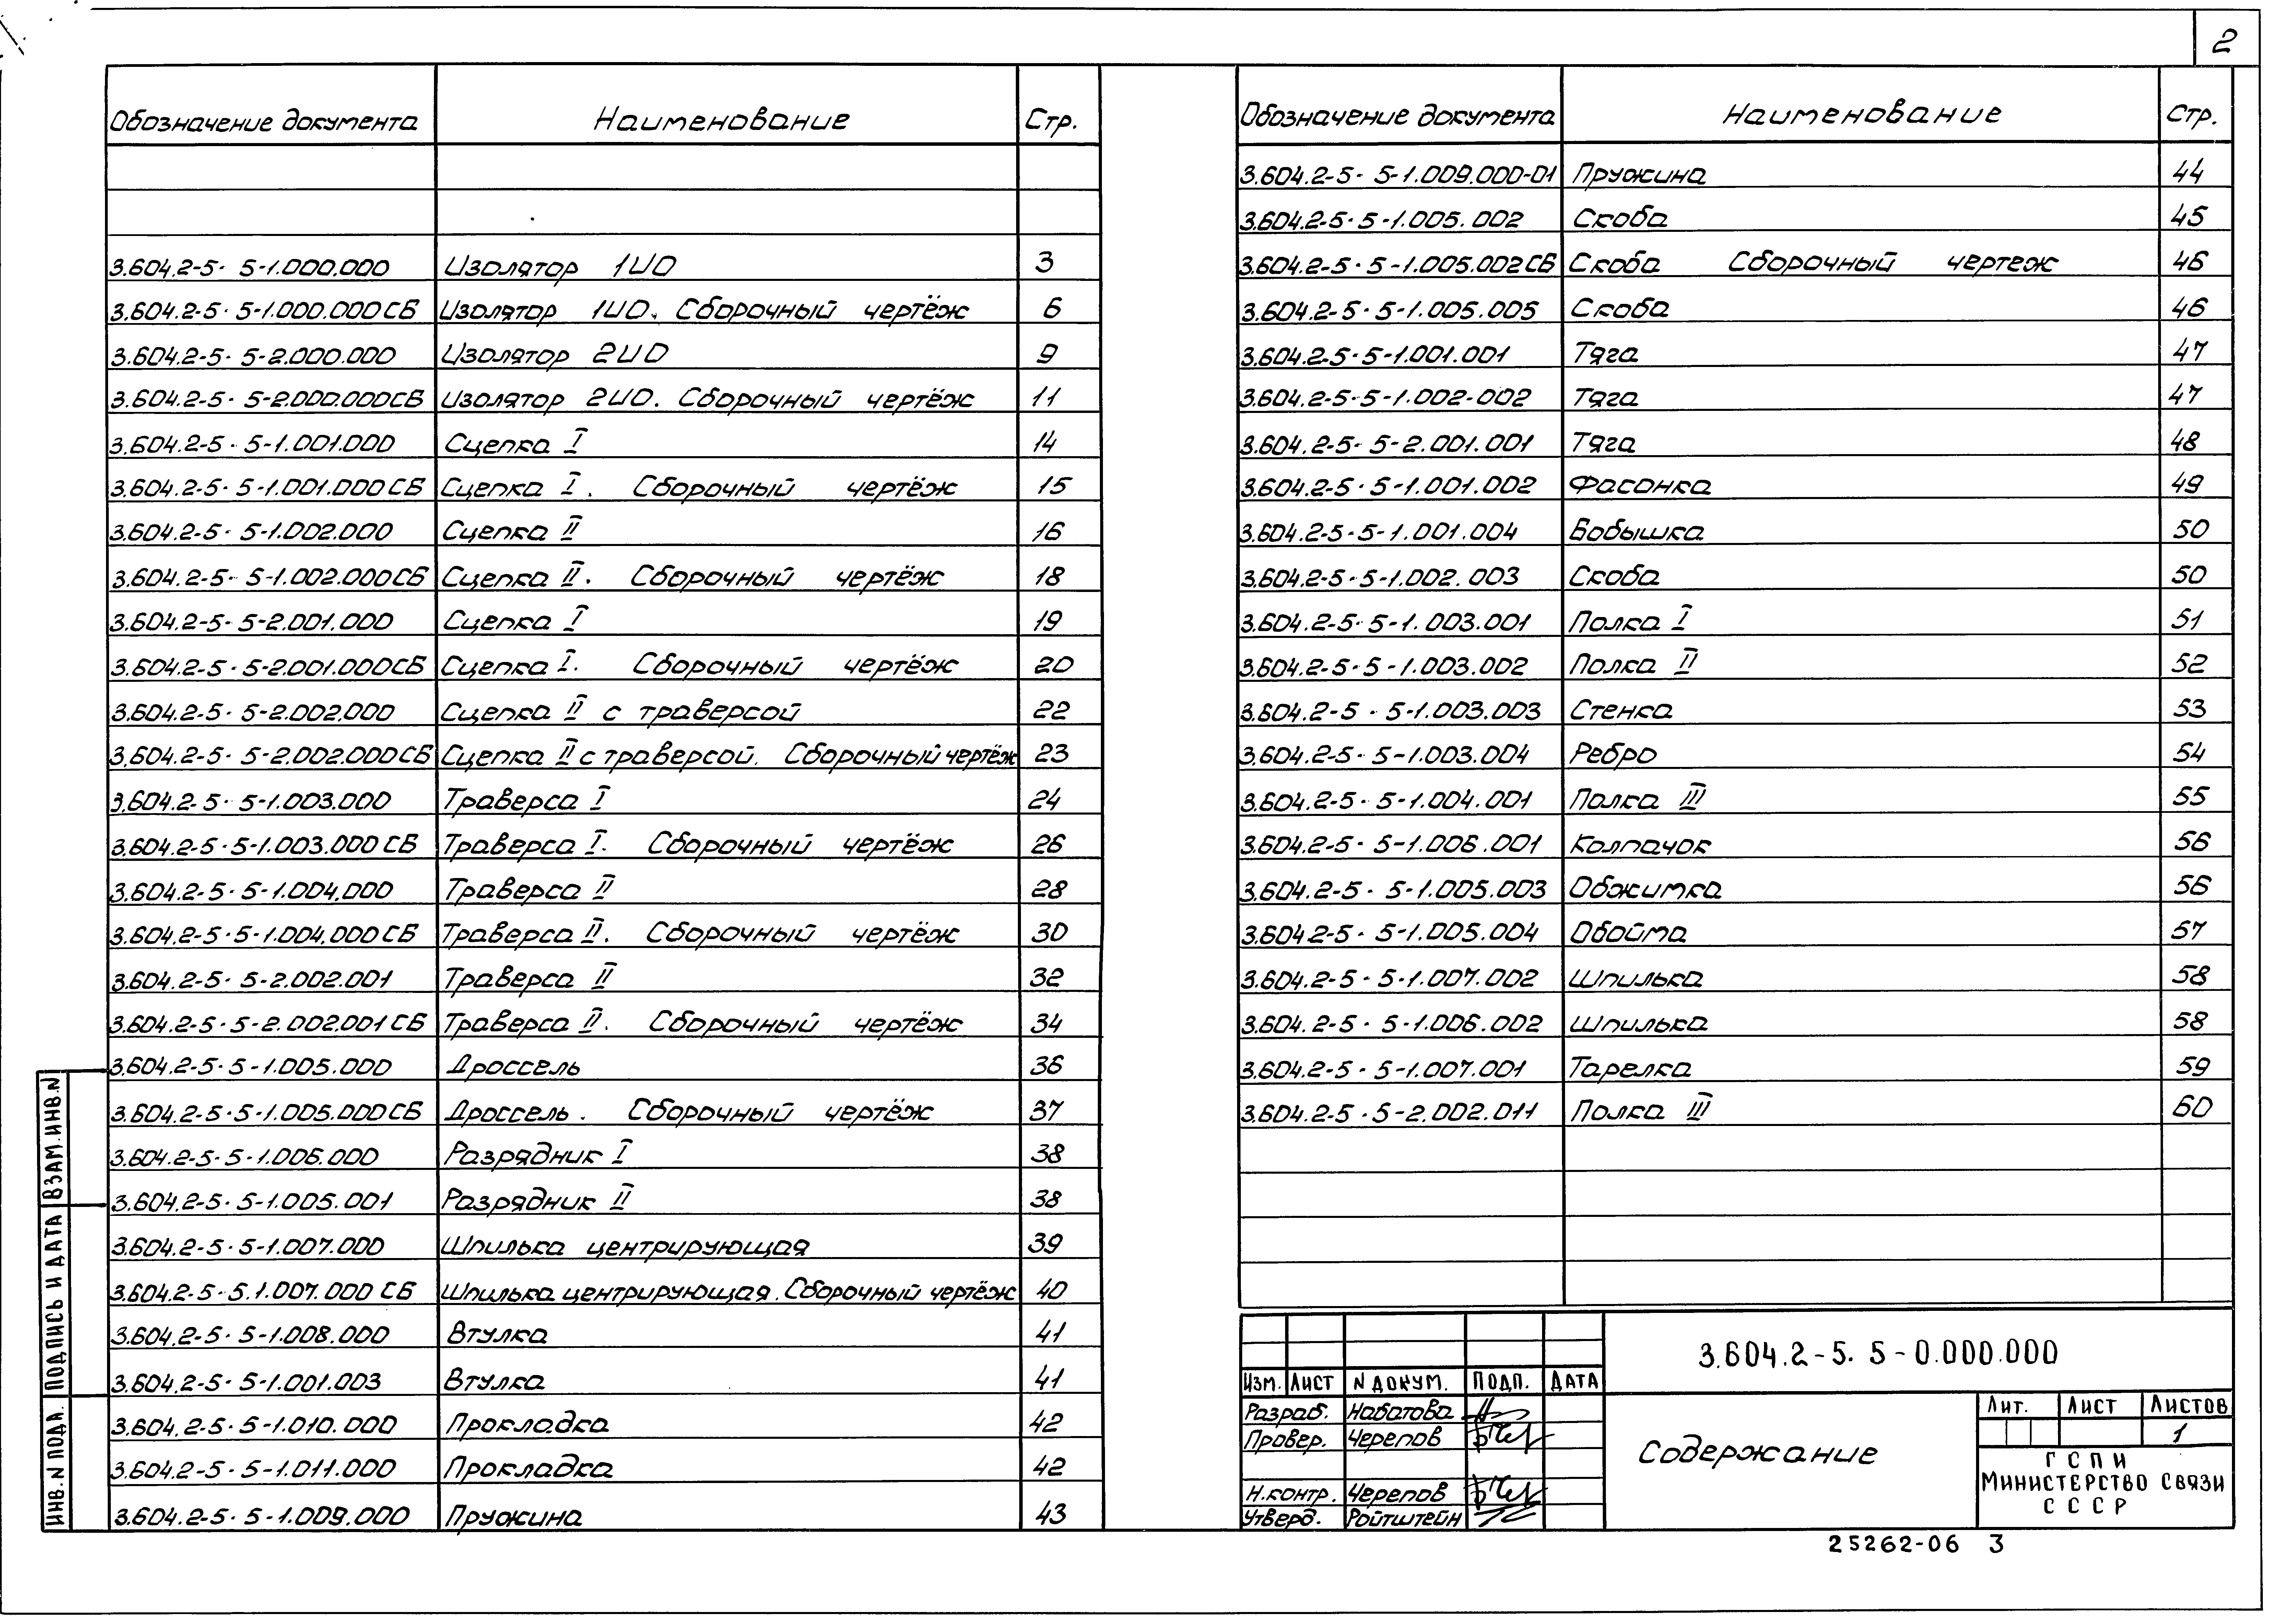 2
Обозначение документа Наименование Стр.
3.604.2-5. 5-1.000.000 Изолятор 1ИО 3
3.604.2-5. 5-1.000.000СБ Изолятор 1ИО. Сборочный чертёж 6
3.604.2-5. 5-2.000.000 Изолятор 2ИО 9
3.604.2-5. 5-2.000.000СБ Изолятор 2ИО. Сборочный чертёж 11
3.604.2-5. 5-1.001.000 Сцепка I 14
3.604.2-5. 5-1.001.000СБ Сцепка I. Сборочный чертёж 15
3.604.2-5. 5-1.002.000 Сцепка II 16
3.604.2-5. 5-1.002.000СБ Сцепка II. Сборочный чертёж 18
3.604.2-5. 5-2.001.000 Сцепка I 19
3.604.2-5. 5-2.001.000СБ Сцепка I. Сборочный чертёж 20
3.604.2-5. 5-2.002.000 Сцепка II с траверсой 22
3.604.2-5. 5-2.002.000СБ Сцепка II с траверсой. Сборочный чертёж 23
3.604.2-5. 5-1.003.000 Траверса I 24
3.604.2-5. 5-1.003.000 СБ Траверса I. Сборочный чертёж 26
3.604.2-5. 5-1.004.000 Траверса II 28
3.604.2-5. 5-1.004.000 СБ Траверса II. Сборочный чертёж 30
3.604.2-5. 5-2.002.001 Траверса II 32
3.604.2-5. 5-2.002.001 СБ Траверса II. Сборочный чертёж 34
3.604.2-5. 5-1.005.000 Дроссель 36
3.604.2-5. 5-1.005.000СБ Дроссель. Сборочный чертёж 37
3.604.2-5. 5-1.006.000 Разрядник I 38
3.604.2-5. 5-1.005.001 Разрядник II 38
3.604.2-5. 5-1.007.000 Шпилька центрирующая 39
3.604.2-5. 5.1.007.000 СБ Шпилька центрирующая. Сборочный чертёж 40
3.604.2-5. 5-1.008.000 Втулка 41
3.604.2-5. 5-1.001.003 Втулка 41
3.604.2-5. 5-1.010.000 Прокладка 42
3.604.2-5. 5-1.011.000 Прокладка 42
3.604.2-5. 5-1.009.000 Пружина 43
Обозначение документа Наименование Стр.
3.604.2-5. 5-1.009.000-01 Пружина 44
3.604.2-5. 5-1.005.002 Скоба 45
3.604.2-5. 5-1.005.002СБ Скоба Сборочный чертеж 46
3.604.2-5. 5-1.005.005 Скоба 46
3.604.2-5. 5-1.001.001 Тяга 47
3.604.2-5. 5-1.002-002 Тяга 47
3.604.2-5. 5-2.001.001 Тяга 48
3.604.2-5. 5-1.001.002 Фасонка 49
3.604.2-5. 5-1.001.004 Бобышка 50
3.604.2-5. 5-1.002.003 Скоба 50
3.604.2-5. 5-1.003.001 Полка I 51
3.604.2-5. 5-1.003.002 Полка II 52
3.604.2-5. 5-1.003.003 Стенка 53
3.604.2-5. 5-1.003.004 Ребро 54
3.604.2-5. 5-1.004.001 Полка III 55
3.604.2-5. 5-1.006.001 Колпачок 56
3.604.2-5. 5-1.005.003 Обжимка 56
3.604.2-5. 5-1.005.004 Обойма 57
3.604.2-5. 5-1.007.002 Шпилька 58
3.604.2-5. 5-1.006.002 Шпилька 58
3.604.2-5. 5-1.007.001 Тарелка 59
3.604.2-5. 5-2.002.011 Полка III 60
ВЗАМ.ИНВ.N
ПОДПИСЬ И ДАТА
ИНВ.N ПОДЛ.
3.604.2-5. 5-0.000.000
ИЗМ. ЛИСТ N ДОКУМ. ПОДП. ДАТА
Разраб. Набатова
Провер. Черепов
Н.контр. Черепов
Утверд. Ройтштейн
Содержание
Лит. Лист Листов
1
ГСПИ
Министерство связи
СССР
25262-06 3